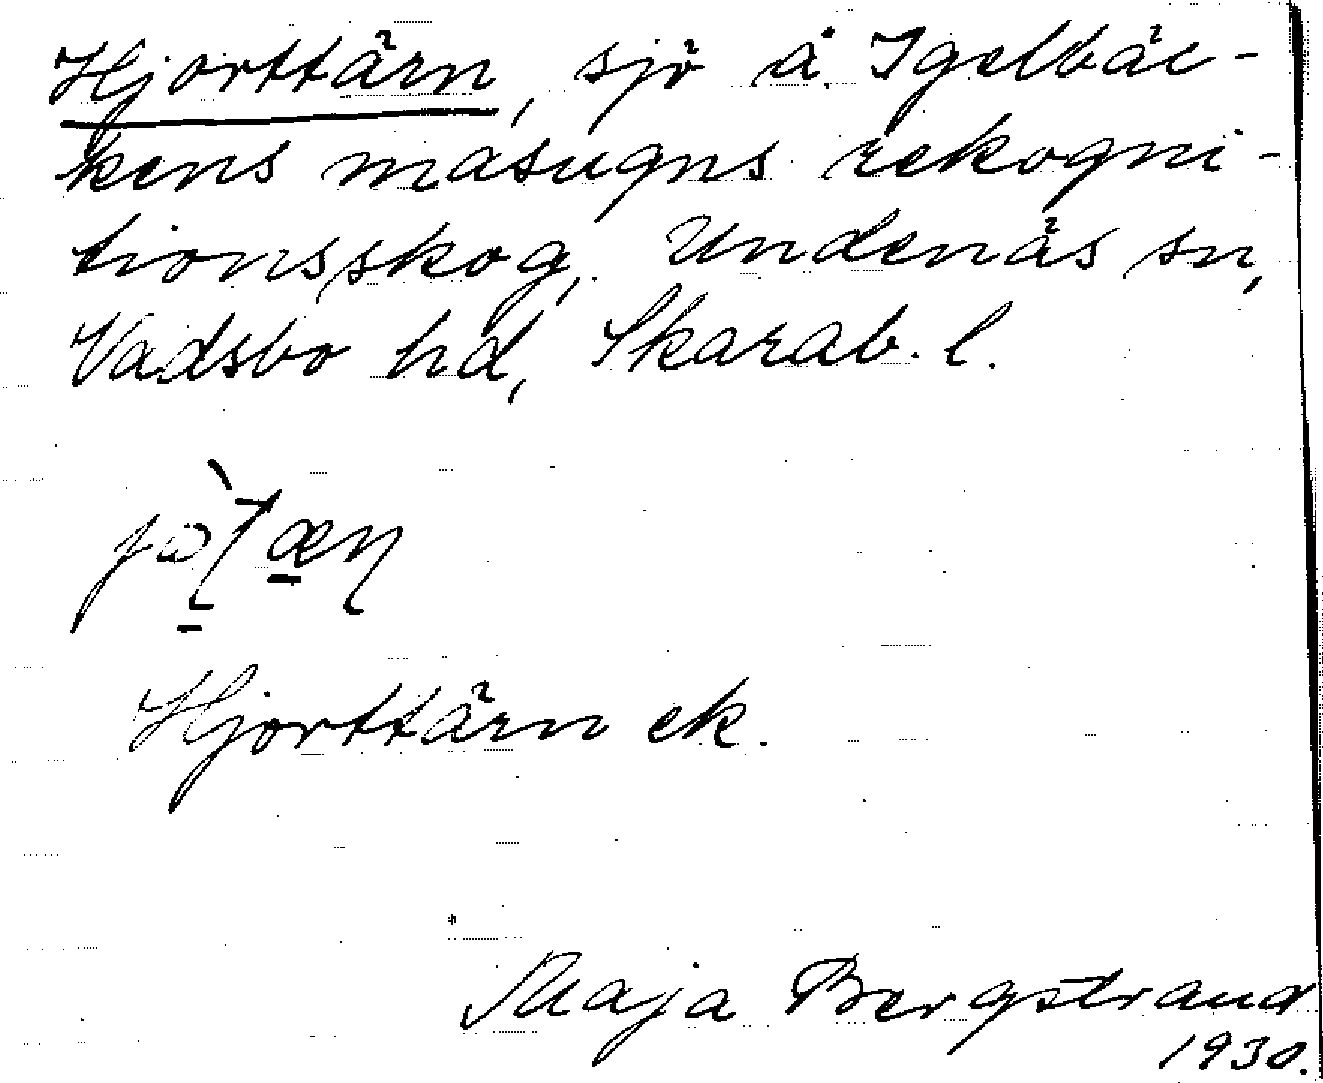 Hjorttärn, sjö å Igelbäc-
kens masugns rekogni-
tionsskog, Undenäs sn,
Vadsbo hd, Skarab. l.
Hjorttärn ek.
Maja Bergstrand
1930.